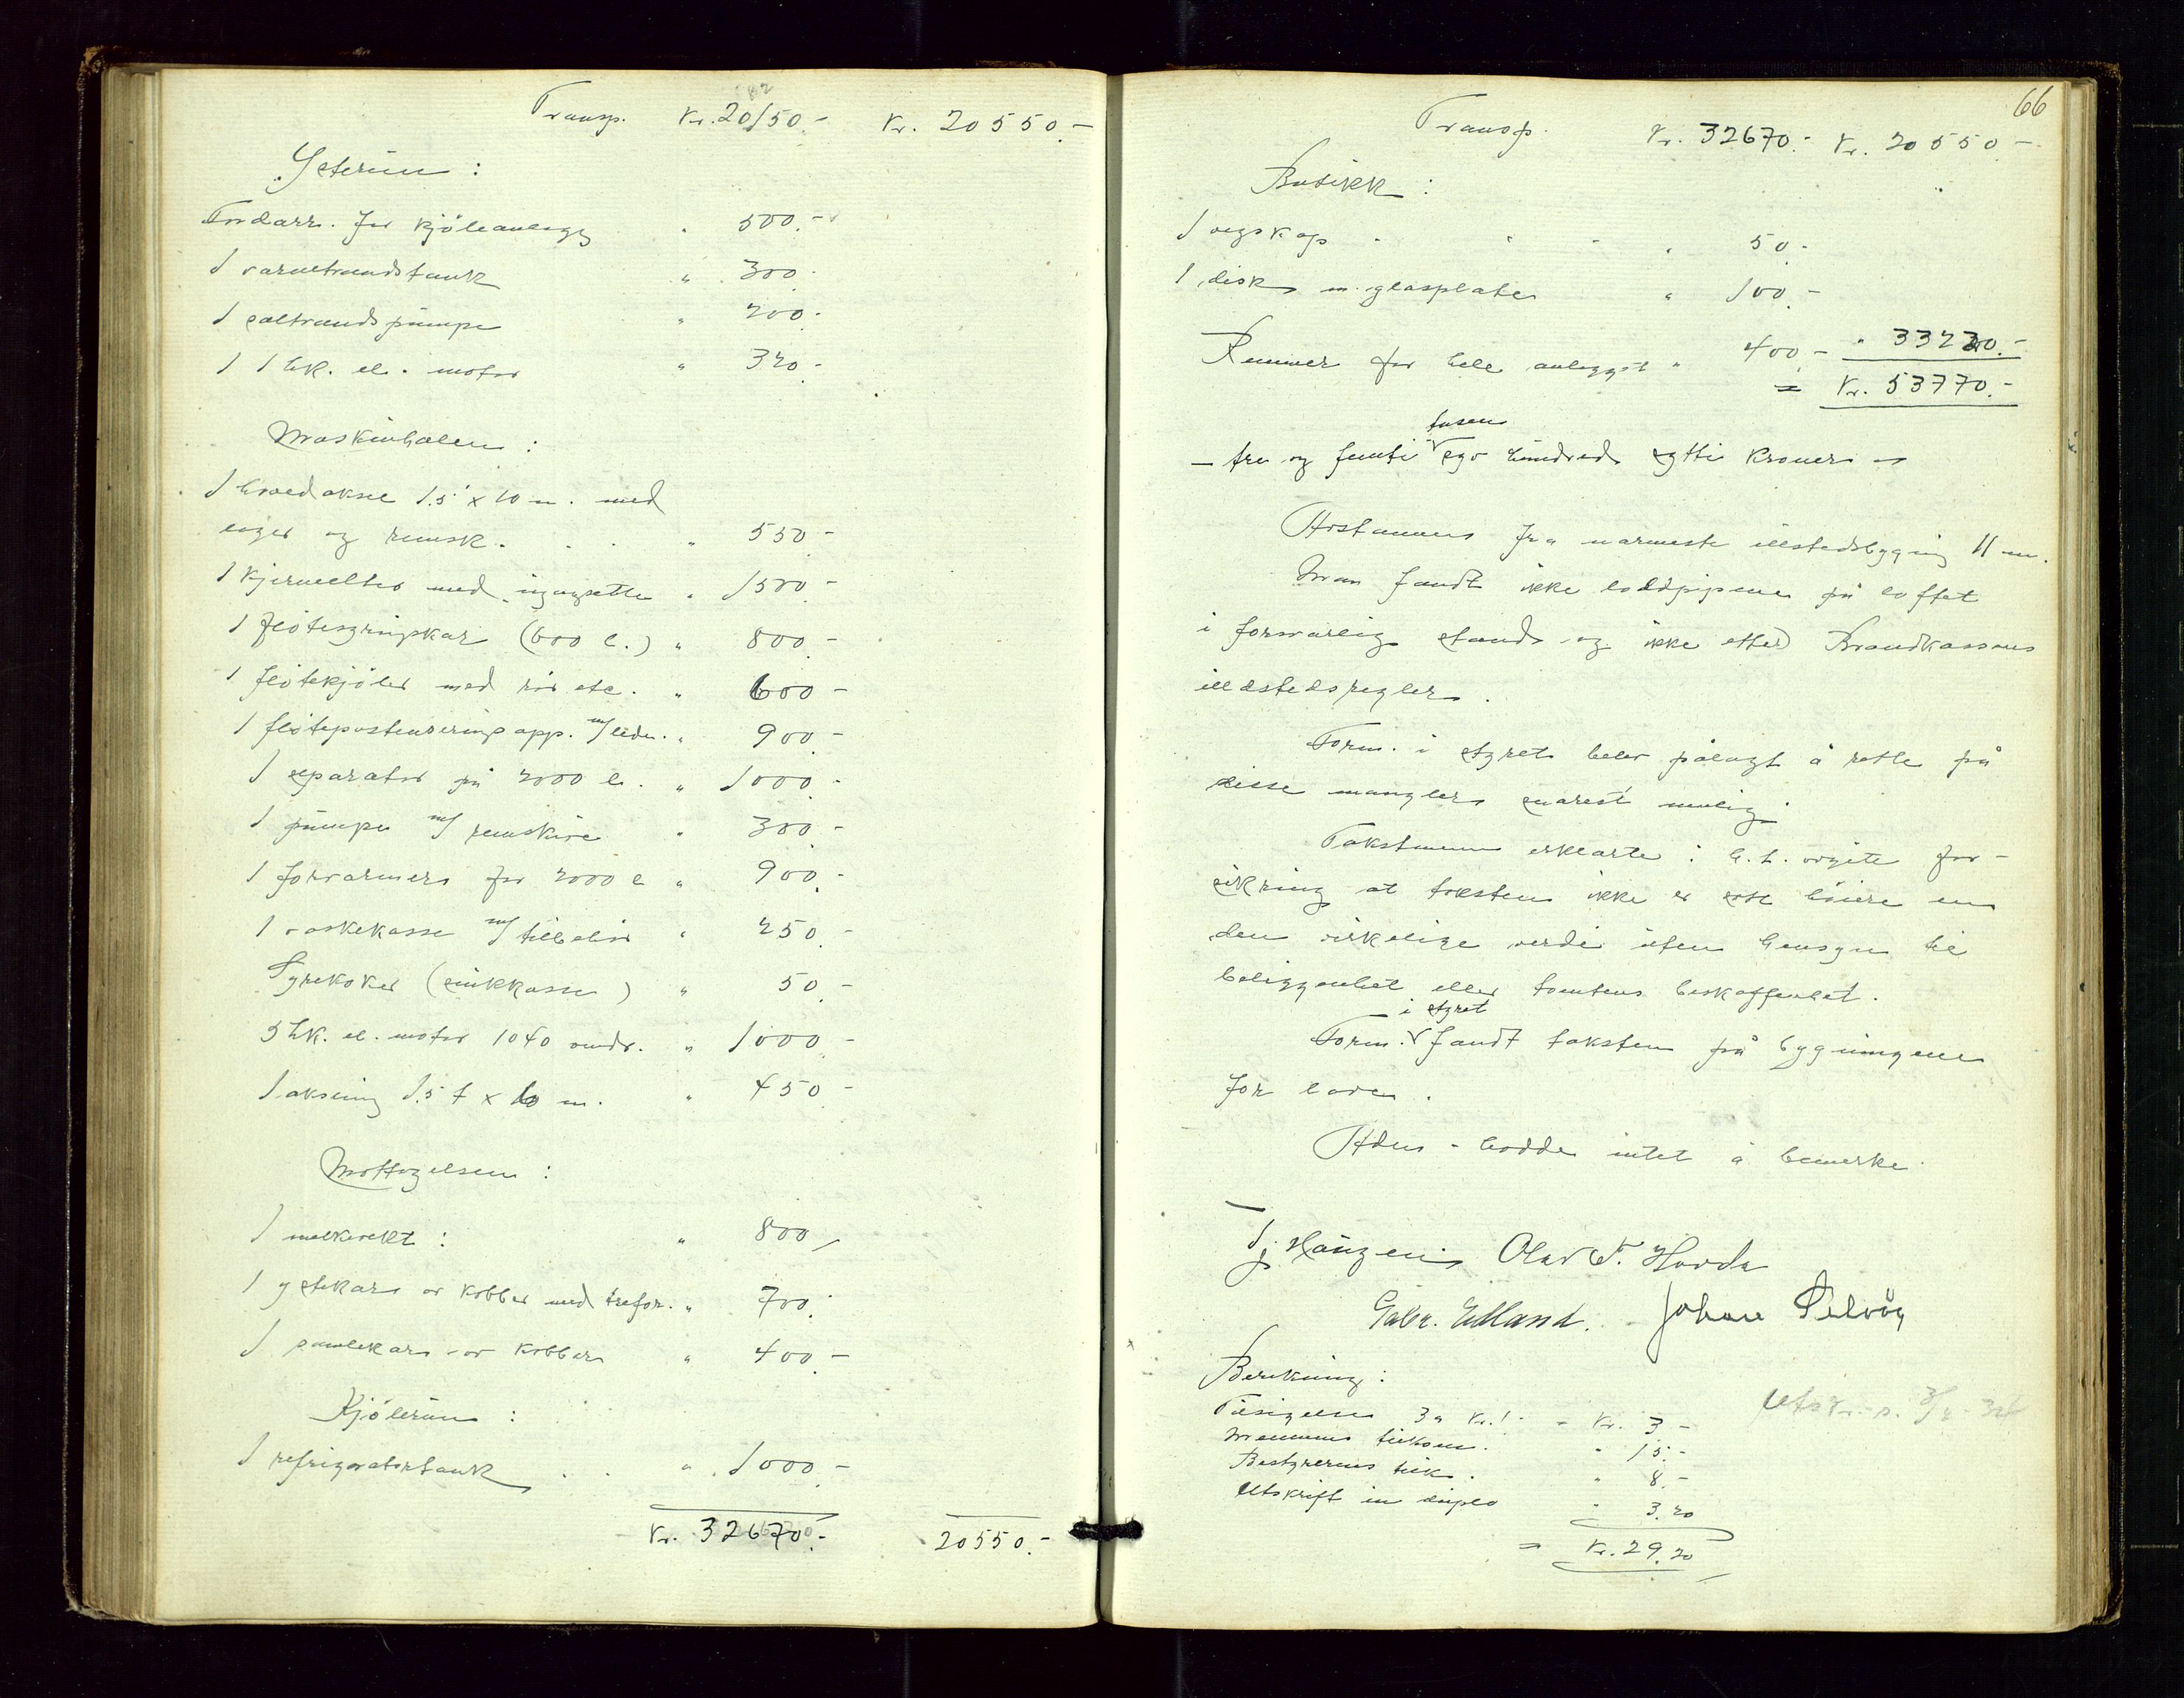 Transp. Kr. 20150.- Kr. 20550.-
Ysterum :
Tvdarr. for kjöleanlegg " 500.-
1 varmtvandstank " 300.-
1 saltvandspumpe " 200.-
1 1 hk. el. motor " 320.-
Maskinhalen :
1 hovedaksel 1.5" x 10 m. med
lager og remsk. . . . " 550.-
1 kjernelter med igangsetter " 1500.-
1 flötesyringskar (600 l.) " 800.-
1 flötekjöler med rör etc. " 600.-
1 flötepasteuriringsapp. m/ledn. " 900.-
1 separator på 2000 l. " 1000.-
1 pumpe m/ remskive " 300.-
1 forvarmer for 2000 l " 900.-
1 vaskekasse m/ tilbehör " 250.-
Syrekoker (sinkkasse) " 50.-
5 hk. el. motor 1040 omdr. " 1000.-
1 aksling 1.5 t x 6 m. " 450.-
Mottagelsen :
1 melkevekt : " 800.-
1 ystekar av kobber med trefor. " 700.-
1 samlekar av kobber " 400.-
Kjölerum :
1 refrigeratortank . . " 1000.-
Kr. 32670.- 20550.-
66
Transp. Kr. 32670.- Kr. 20550.-
Butikk :
1 vegskap - - - " 50.-
1 disk m. glasplater " 100.-
Remmer for hele anlegget " 400.- " 33220.-
= Kr. 53770.-
tusen
- tre og femti syv hundrede sytti kroner -
Avstanden fra nærmeste ildstedsbygning 11 m.
Man fandt ikke loddpipene på loftet
i forsvarlig stand og ikke efter Brandkassens
ildstedsregler.
Form. i styret blev pålagt å rette på
disse mangler snarest mulig.
Takstmennene erklærte i h. t. avgitt for-
sikring at taksten ikke er satt höiere enn
den virkelige verdi uten hensyn til
beliggenhet eller tomtens beskaffenhet.
i styret
Form. fandt taksten på bygningene
for lav.
Adm. hadde intet å bemerke.
Tj. Haugen Olav T. Hovda
Gabr. Edland. Johan Selvåg
Berekning :
Tilsigelse 3 a Kr. 1.- - Kr. 3.-
Mennenes tilkom. " 15.-
Bestyrerens tilk. " 8.-
Utskrift in duplo " 3.20
= Kr. 29.20
Utskr. s. 3/4 34